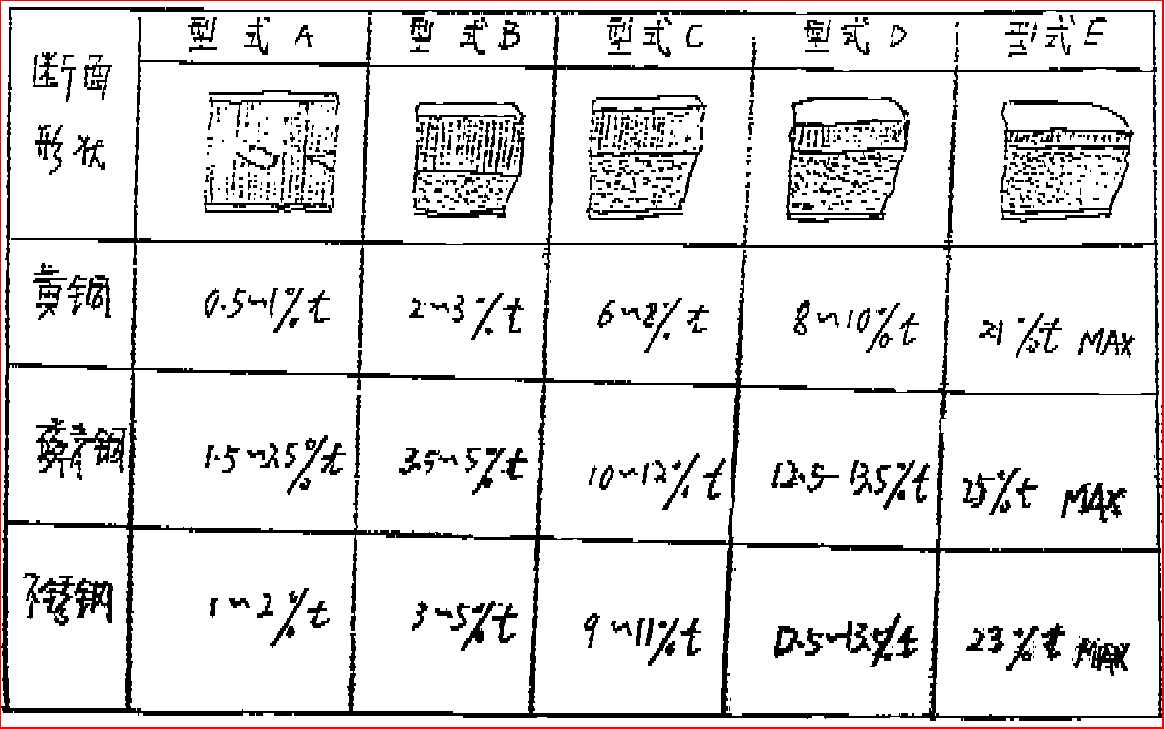 断面形状 型式A 型式B 型式C 型式D 型式E
黄铜 0.5~1%t 2~3%t 6~8%t 8~10%t 21%t MAX
磷青铜 1.5~2.5%t 3.5~5%t 10~12%t 12.5~13.5%t 25%t MAX
不锈钢 1~2%t 3~5%t 9~11%t 12.5~13%t 23%t MAX